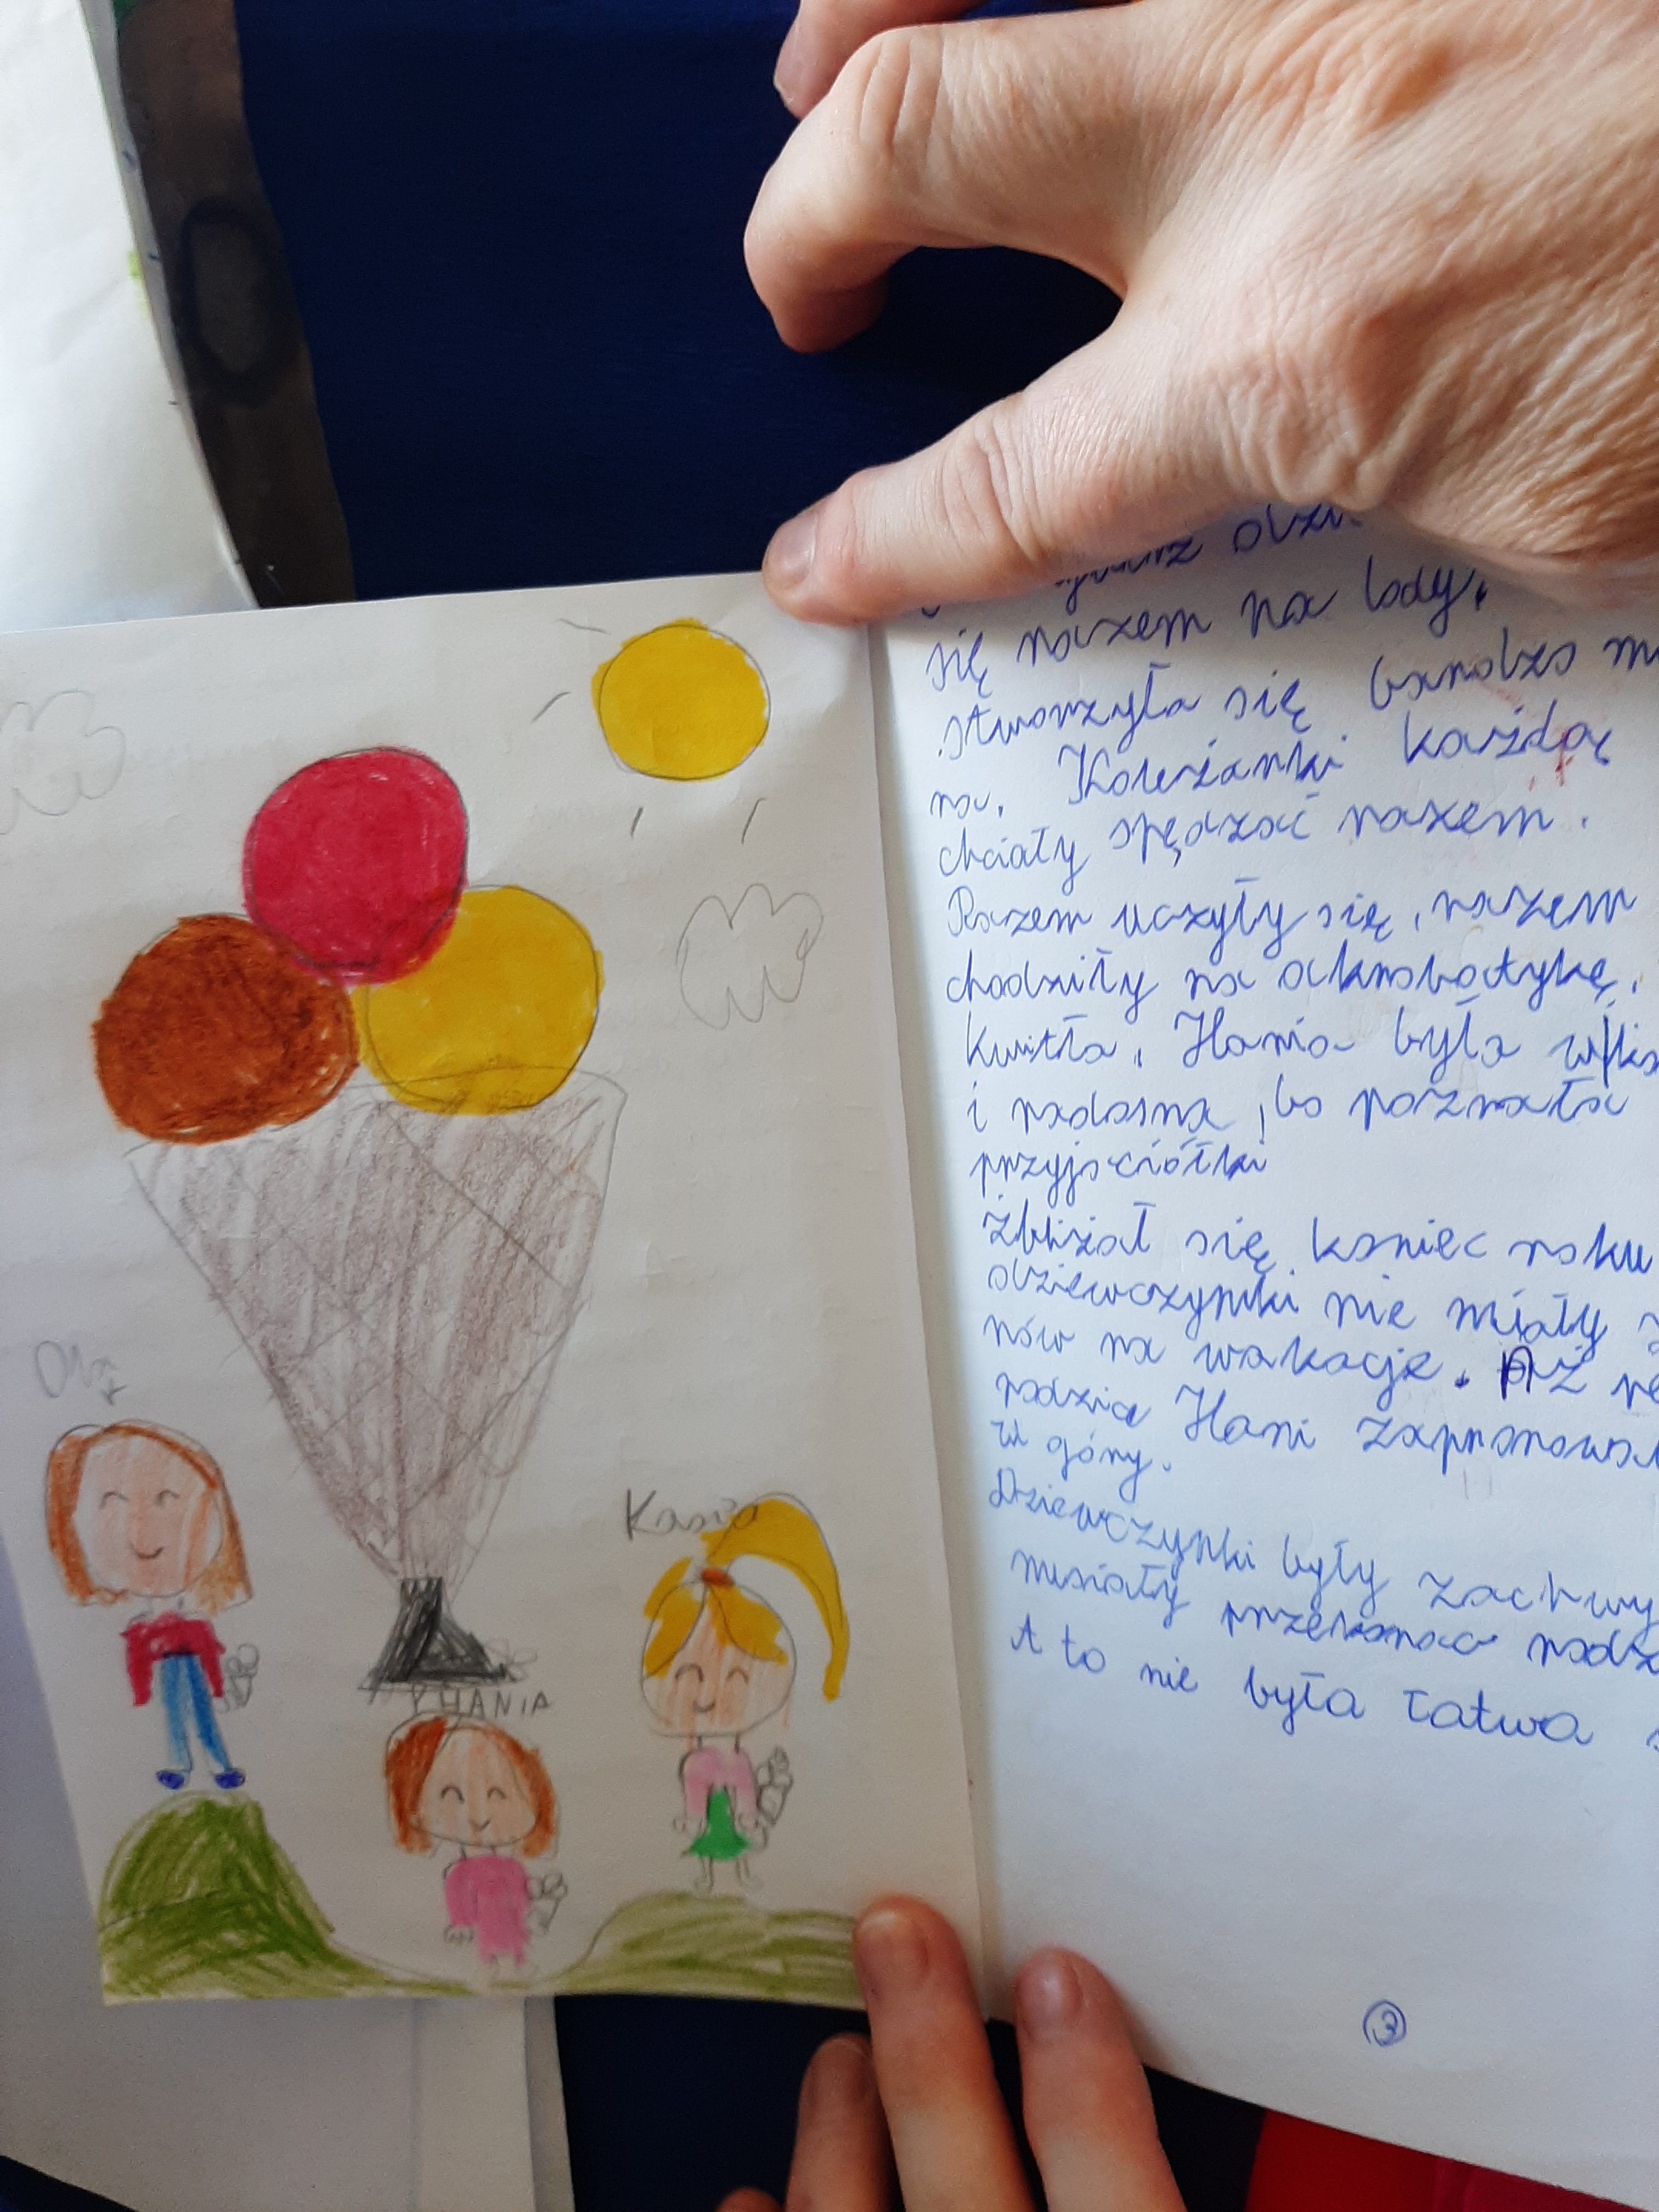 Ola
Kasia
HANIA
się razem na lody.
stworzyła się bardzo
na. Koleżanki każdą
chciały spędzać razem.
Razem uczyły się, razem
chodziły na akrobatykę.
kwitła. Hania była
i radosna, bo poznała
przyjaciółki
Zbliżał się koniec roku
dziewczynki nie miały
nów na wakacje. Aż
rodzice Hani
w góry.
Dziewczynki były
musiały przekonac
A to nie była łatwa
3